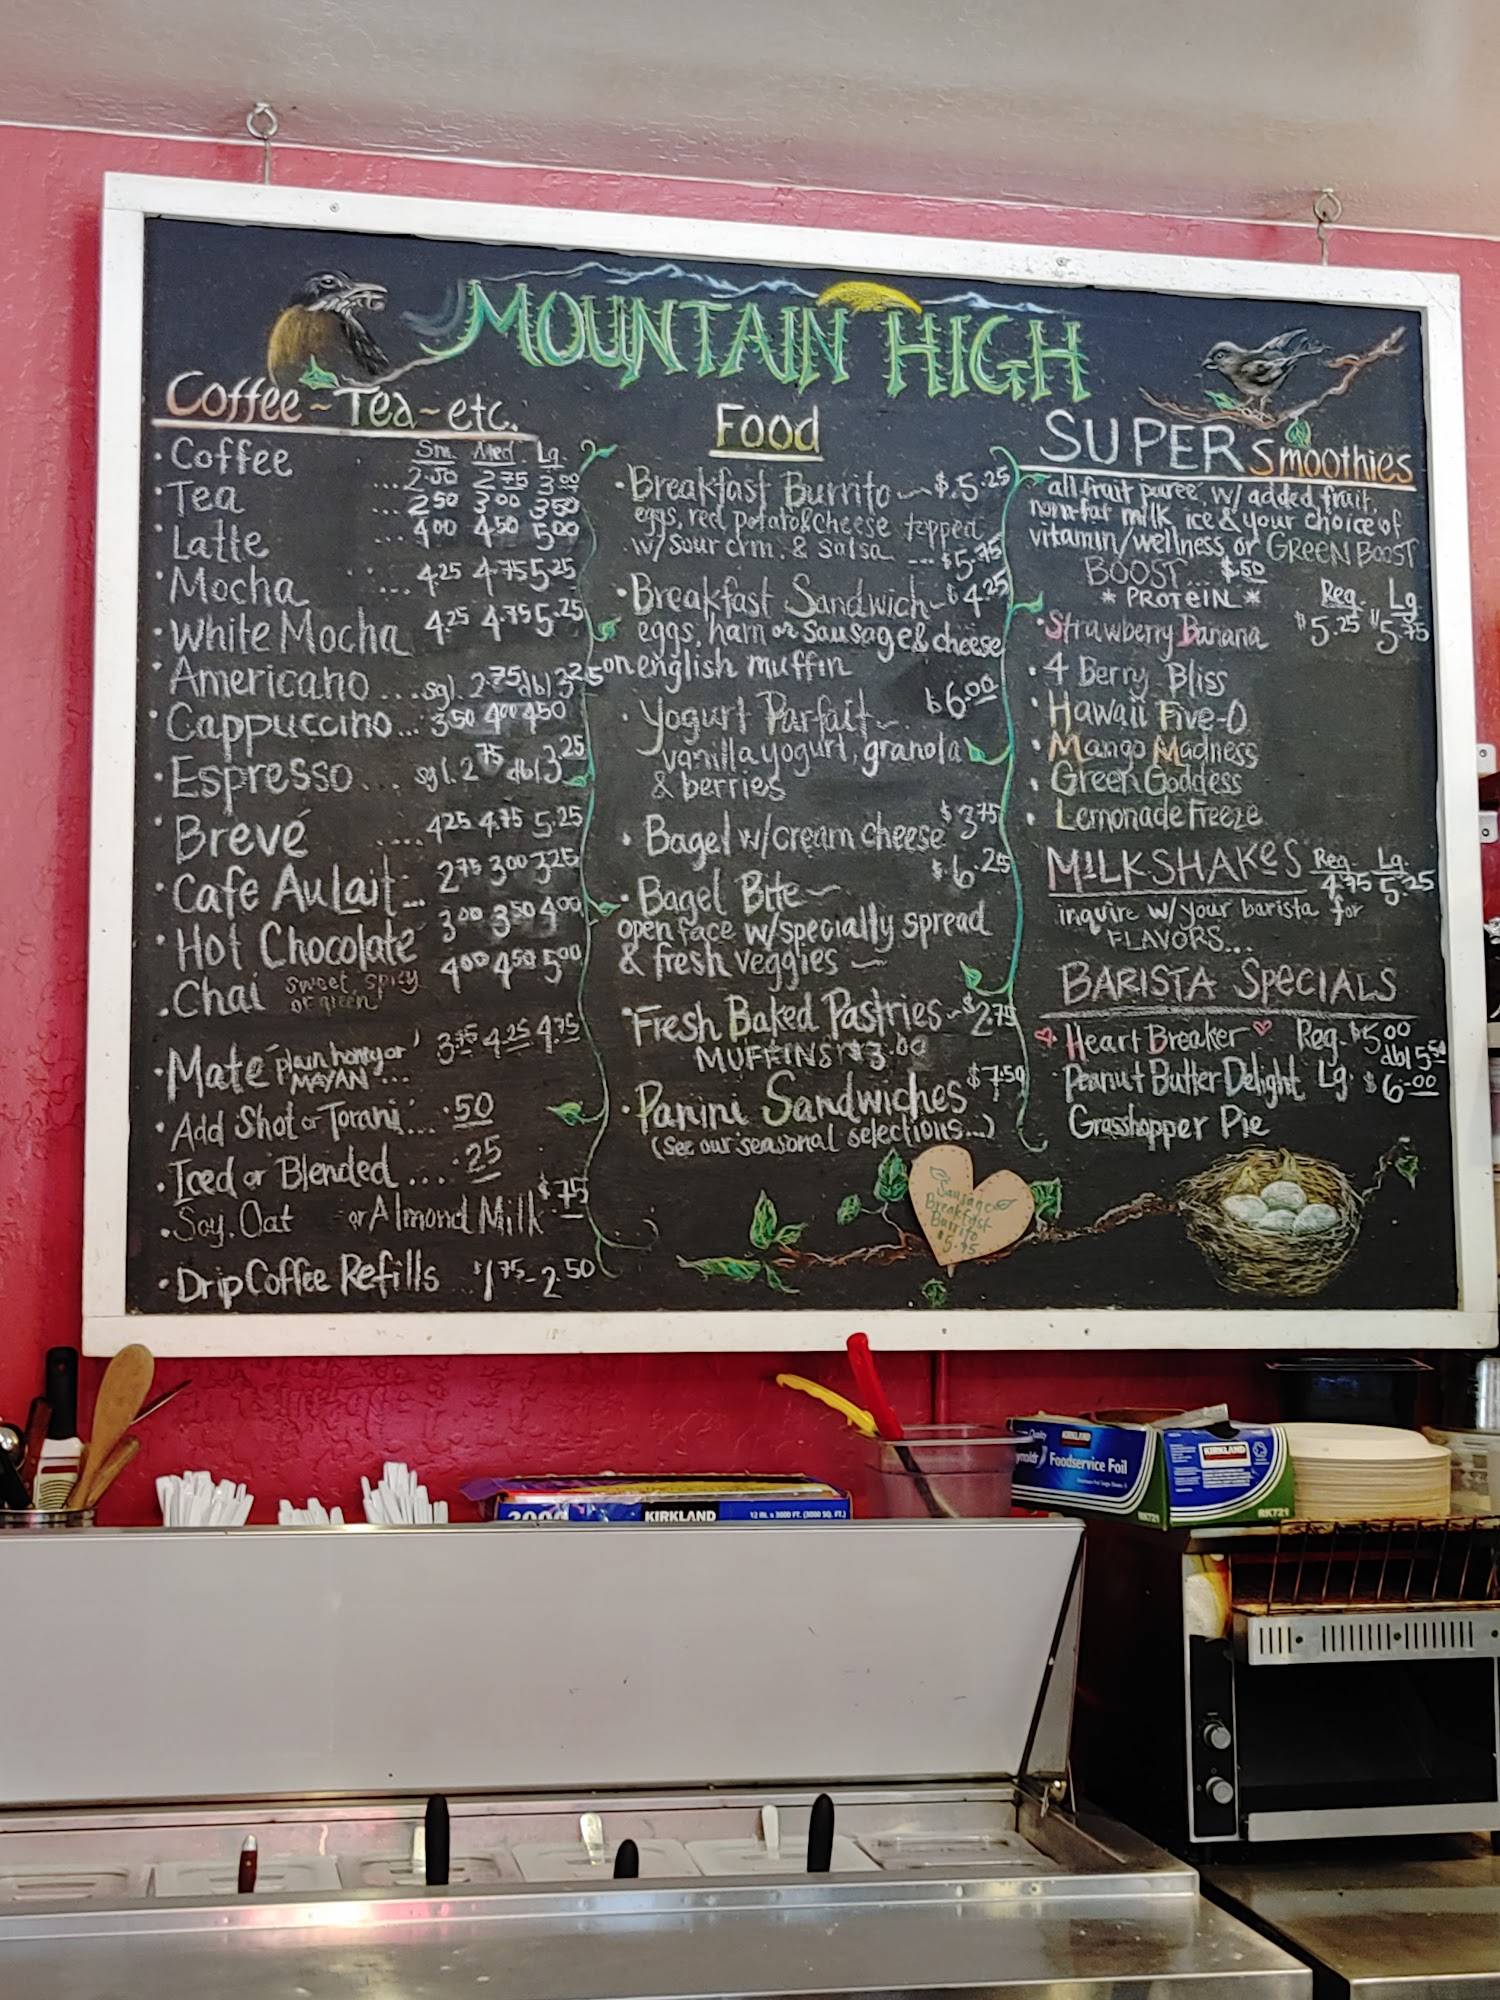 MOUNTAIN HIGH
Coffee ~ Tea ~ etc.
Sm. Med Lg.
· Coffee ... 2.50 2.75 3.00
· Tea ... 2.50 3.00 3.50
· Latte ... 4.00 4.50 5.00
· Mocha ... 4.25 4.75 5.25
· White Mocha 4.25 4.75 5.25
· Americano ... sgl. 2.75 dbl 3.25
· Cappuccino ... 3.50 4.00 4.50
· Espresso ... sgl. 2.75 dbl 3.25
· Brevé .... 4.25 4.75 5.25
· Cafe Au Lait ... 2.75 3.00 3.25
· Hot Chocolate 3.00 3.50 4.00
· Chai sweet, spicy or green 4.00 4.50 5.00
· Mate plain honey or MAYAN ... 3.75 4.25 4.75
· Add Shot or Torani ... .50
· Iced or Blended .... .25
· Soy. Oat or Almond Milk $.75
· Drip Coffee Refills $1.75 - 2.50
Food
· Breakfast Burrito ~ $5.25
eggs, red potato & cheese topped
w/ sour crm. & salsa --- $5.75
· Breakfast Sandwich ~ $4.25
eggs, ham or sausage & cheese
on english muffin
· Yogurt Parfait ~ 6.00
vanilla yogurt, granola
& berries
· Bagel w/cream cheese $3.75
· Bagel Bite ~ $6.25
open face w/specialty spread
& fresh veggies ~
· Fresh Baked Pastries ~ $2.75
MUFFINS! $3.00
· Panini Sandwiches $7.50
(see our seasonal selections...)
Sausage
Breakfast
Burrito
$5.95
SUPER Smoothies
all fruit puree w/ added fruit,
non-fat milk, ice & your choice of
vitamin/wellness or GREEN BOOST
BOOST... $.50
* PROTEIN *
Reg. Lg
· Strawberry Banana $5.25 $5.75
· 4 Berry Bliss
· Hawaii Five-O
· Mango Madness
· Green Goddess
· Lemonade Freeze
MILKSHAKES Reg. 4.75 Lg. 5.25
inquire w/ your barista for
FLAVORS...
BARISTA SPECIALS
Heart Breaker Reg. $5.00
dbl 5.50
Peanut Butter Delight Lg. $6.00
Grasshopper Pie
3000
KIRKLAND
12 IN. x 3000 FT. (3000 SQ. FT.)
Quality
KIRKLAND
Foodservice Foil
RK721
KIRKLAND
RK721